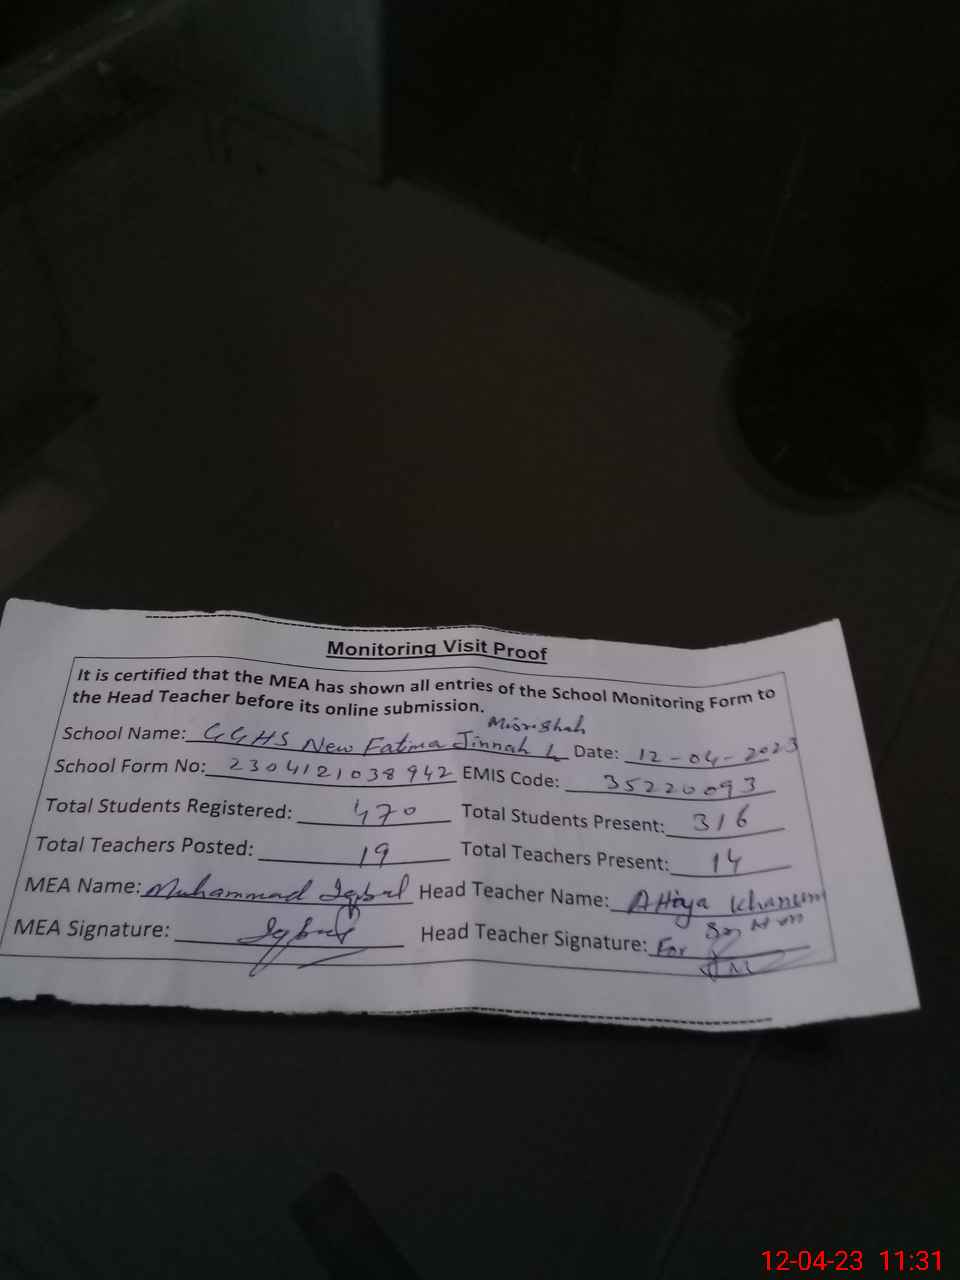 Monitoring Visit Proof
It is certified that the MEA has shown all entries of the School Monitoring Form to
the Head Teacher before its online submission.
School Name: GGHS New Fatima Jinnah Misrishah Date: 12-04-2023
School Form No: 2304121038942 EMIS Code: 35220093
Total Students Registered: 470 Total Students Present: 316
Total Teachers Posted: 19 Total Teachers Present: 14
MEA Name: Muhammad Iqbal Head Teacher Name: Attiya Khanum
MEA Signature: Iqbal Head Teacher Signature: For
12-04-23 11:31